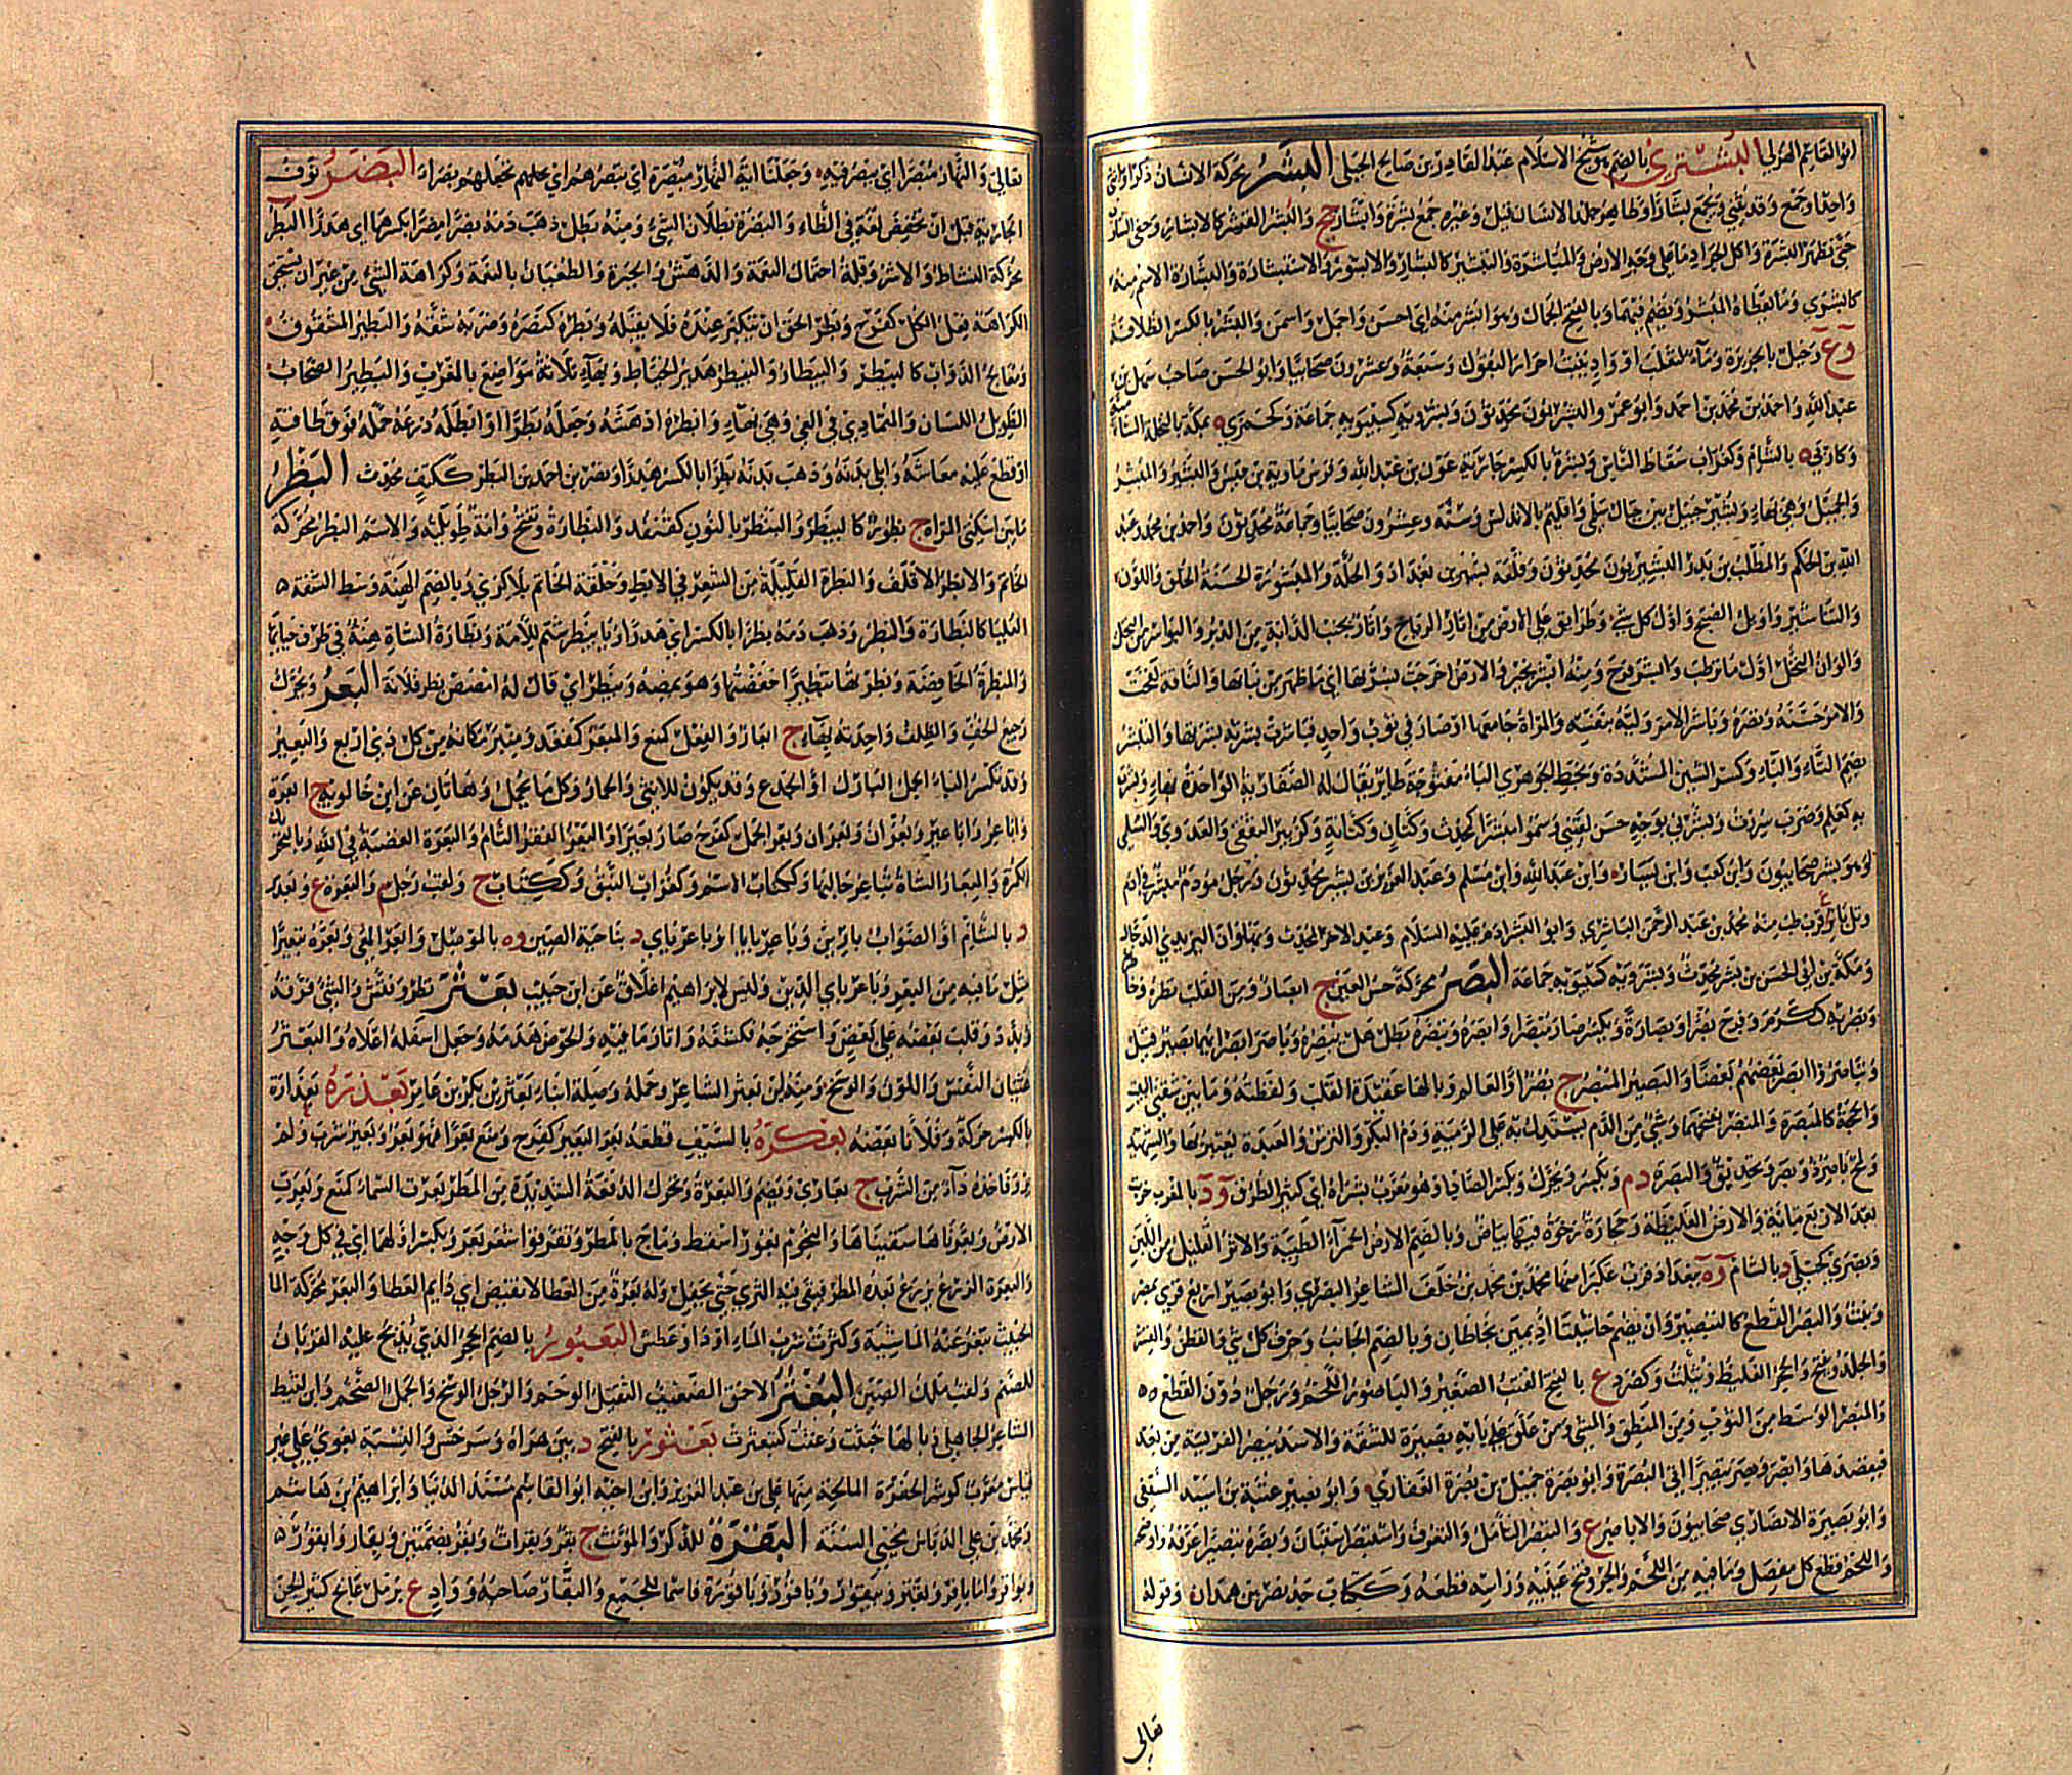 ابو القاسم الهزلي البشتري بالضم هو شيخ الاسلام عبد القادر بن صالح الجيلي البشر محركة الانسان ذكرا او انثى
واحدا وجمعا وقد يثنى ويجمع ابشارا وظاهر جلد الانسان قيل وغيره جمع بشرة وابشار جج والبشر القشر كالابشار وحفى الشارب
حتى تظهر البشرة واكل الجراد ما على وجه الارض والمباشرة والتبشير كالابشار والبشور والاستبشار والبشارة الاسم منه
كالبشرى وما يعطاه المبشر ويضم فيهما وبالفتح الجمال وهو ابشر منه اى احسن واجمل واسمن والبشر بالكسر الطلاقة
وع وجبل بالجزيرة وماء لتغلب او واد ينبت احرار البقول وسبعة وعشرون صحابيا وابو الحسن صاحب سهل بن
عبد الله واحمد بن محمد بن احمد وابو عمرو البشريون محدثون وبشرويه كسيبويه جماعة وكجمزى ه بمكة بالنخلة الشامية
وكاربى ه بالشام وكغراب سقاط الناس وبشرة بالكسر جارية عون بن عبد الله وفرس ماوية بن قيس والبشير المبشر
والجميل وهى بهاء وبشير جبل من جبال سلمى واقليم بالاندلس وستة وعشرون صحابيا وجماعة محدثون واحمد بن محمد وعبد
الله بن الحكم والمطلب بن بدر البشيريون محدثون وقلعة بشير ببغداد والحلة والمبشورة الحسنة الخلق واللون
والتباشير البشرى واوائل الصبح واول كل شئ وطرائق على الارض من اثار الرياح واثار بجنب الدابة من الدبر والبواكر من النخل
والوان النخل اول ما ترطب والبشر فرح ومنه ابشر بخير و الارض اخرجت بشرتها اى ما ظهر من نباتها والناقة لقحت
والامر حسنه ونضره وباشر الامر وليه بنفسه والمراة جامعها او صارا في ثوب واحد فباشرت بشرته بشرتها والتبشر
بضم التاء والباء وكسر الشين المشددة وبخط الجوهرى الباء مفتوحة طاير يقال له الصفارية الواحدة بهاء وبشرت
به كعلم وضرب سررت وبشرنى بوجه حسن لقينى وسموا مبشرا كمحدث وكتان وكتابة وكزبير الثقفى والعدوى والسلمى
او هو بشر صحابيون وابن كعب وابن يسار وابن عبد الله وابن مسلم وعبد العزيز بن بشير محدثون ورجل مودم مبشر في ادم
وتل باشر ع قرب حلب منه محمد بن عبد الرحمن الباشرى وابو البشر ادم عليه السلام وعبد الاخر المحدث وبهلوان اليزيدى الدجال
ومكى بن ابى الحسن بن بشر محدث وبشرويه كسيبويه جماعة البصر محركة حس العين ج ابصار ومن القلب نظره وخاطره
وبصر به ككرم وفرح بصرا وبصارة ويكسر صار مبصرا وابصره وتبصره نظر هل يبصره وباصرا نظرا ايهما يبصر قبل
وتباصروا ابصر بعضهم بعضا والبصير المبصر ج بصراء والعالم وبالهاء عقيدة القلب والفطنة وما بين شقتى البيت
والحجة كالمبصرة والمبصر بفتحهما وشئ من الدم يستدل به على الرمية ودم البكر والترس والدرع والعبرة يعتبر بها والشهيد
ولمح باصر ذو بصر وتحديق والبصرة د م ويكسر ويحرك وبكسر الصاد او هو معرب بس راه اى كثير الطرق ود بالمغرب خرب
بعد الاربع مائة والارض الغليظة وحجارة رخوة فيها بياض وبالضم الارض الحمراء الطيبة والاثر القليل من اللبن
وبصرى كحبلى د بالشام وه ببغداد قرب عكبرا منها محمد بن محمد بن خلف الشاعر البصرى وابو بصير اربع قرى بمصر
ونبت والبصر القطع كالتبصير وان يضم حاشيتا اديمين يخاطان وبالضم الجانب وحرف كل شئ والقطن والقشر
والجلد ويفتح والحجر الغليظ ويثلث وكصرد ع بالفتح القتب الصغير والباصور اللحم ورحل دون القطع
والمبصر الوسط من الثوب ومن المنطق والمشى ومن علق على بابه بصيرة للشقة والاسد يبصر الفريسة من بعد
فيقصدها وابصر وبصر تبصيرا اتى البصرة وابو بصرة جميل بن بصرة الغفارى وابو بصير عتبة بن اسيد الثقفى
وابو بصيرة الانصارى صحابيون والاباصر ع والتبصر التامل والتعرف واستبصر استبان وبصره تبصيرا عرفه واوضحه
واللحم قطع كل مفصل وما فيه من اللحم والجرو فتح عينيه وراسه قطعه وككتاب جد نصر بن دهمان وقوله
تعالى
تعالى والنهار مبصرا اى يبصر فيه وجعلنا اية النهار مبصرة اى تبصرهم اى تجعلهم بصراء البضر نوف
الجارية قبل ان تخفض لغة في الظاء والبضرة بطلان الشئ ومنه بطل ذهب دمه بضرا مضرا بكسرهما اى هدرا البطر
محركة النشاط والاشر وقلة احتمال النعمة والدهش والحيرة والطغيان بالنعمة وكراهة الشئ من غير ان يستحق
الكراهة فعل الكل كفرح وبطر الحق ان يتكبر عنده فلا يقبله وبطره كنصره وضربه شقه والبطير المشقوق
ومعالج الدواب كالبيطر والبيطار والبيطر كهزبر الخياط وبهاء ثلاثة مواضع بالمغرب والبطير الصخاب
الطويل اللسان والمتمادى في الغى وهى بهاء وابطره ادهشه وجعله بطرا وابطره ذرعه حمله فوق طاقته
او قطع عليه معاشه وابلى بدنه وذهب دمه بطرا بالكسر هدرا ونصر بن احمد بن البطر ككتف محدث البظر
ما بين اسكتى المراة ج بظور كالبيظر والبنظر بالنون كقنفذ والبظارة وتفتح وامة طويلته والاسم البظر محركة
الخاتم والابظر الاقلف والبظرة القليلة من الشعر في الابط وحلقة الخاتم بلا كرسى وبالضم الهنة وسط الشفة
العليا كالبظارة والبظر وذهب دمه بظرا بالكسر اى هدرا ويا بيظر شتم للامة وبظارة الشاة هنة في طرف حيائها
والمبظرة الخافضة وبظرتها تبظيرا خفضتها وهو يمصه ويبظره اى قال له امصص بظر فلانة البعر ويحرك
رجيع الخف والظلف واحدته بهاء ج ابعار والفعل كمنع والمبعر كمقعد ومنبر مكانه من كل ذى اربع والبعير
وقد تكسر الباء الجمل البازل او الجذع وقد يكون للانثى والحمار وكل ما يحمل وهاتان عن ابن خالويه ج ابعرة
واباعر واباعير وبعران وبعران وبعر الجمل كفرح صار بعيرا والبعر الفقر التام والبعرة الغضبة في الله وبالتحريك
الكمرة والبعار الشاة تباعر حالبها وككتاب الاسم وكغراب النبق وككتاب ج ولقب رجل م والبعرة ع وبعد
د بالشام او الصواب يا عربى باعربايا او باعرباى د بناحية الصين وه بالموصل وابعر المعى وبعره تبعيرا
مثل ما فيه من البعر وباعرباى الذين وليس لابراهيم اغلاق عن ابن حبيب بعثر نظر وفتش والشئ فرقه
وبدد وقلب بعضه على بعض واستخرجه فكشفه واثار ما فيه والحوض هدمه وجعل اسفله اعلاه والبعثرة
غثيان النفس واللون والوسخ ومنه ابن بعثر الشاعر وحمله وصيلة ابناء بعثر بن بكر بن عامر بعذره بعذارة
بالكسر حركه وفلانا نقصه بعكره بالسيف قطعه بغر البعير كفرح ومنع بغرا فهو بغر وبغير شرب ولم
يرو فاخذه داء من الشرب ج بغارى ويضم والبغرة ويحرك الدفعة الشديدة من المطر بغرت السماء كمنع وبغرت
الارض وبغرناها سقيناها والنجم بغورا سقط وهاج بالمطر وتفرقوا شغر بغر ويكسر اولهما اى في كل وجه
والبغرة الزرع يزرع بعد المطر فيبقى فيه الثرى حتى يحقل وله بغرة من العطا لا تغيض اى دايم العطا والبغر محركة الما
الخبيث تبغر عنه الماشية وكثرت شرب الماء او داء وعطش البغبور بالضم الحجر الذى يذبح عليه القربان
للصنم ولقب ملك الصين البغثر الاحمق الضعيف الثقيل الوخم والرجل الوسخ والجمل الضخم وابن لقيط
الشاعر الجاهلى وبالهاء خبثت وغثت كتبغثرت بغشور بالفتح د بين هراة وسرخس والنسبة بغوى على غير
قياس معرب كوشور الحفرة المالحة منها على بن عبد العزيز وابن اخيه ابو القاسم مسند الدنيا وابراهيم بن هاشم
ومحمد بن على الدباس محيى السنة البقرة للذكر والمونث ج بقر وبقرات وبقر بضمتين وبقار وابقور
وبواقر واما باقر وبقير وبيقور وباقور وباقورة فاسما للجمع والبقار صاحبه وواد وع برمل عالج كثير الجن